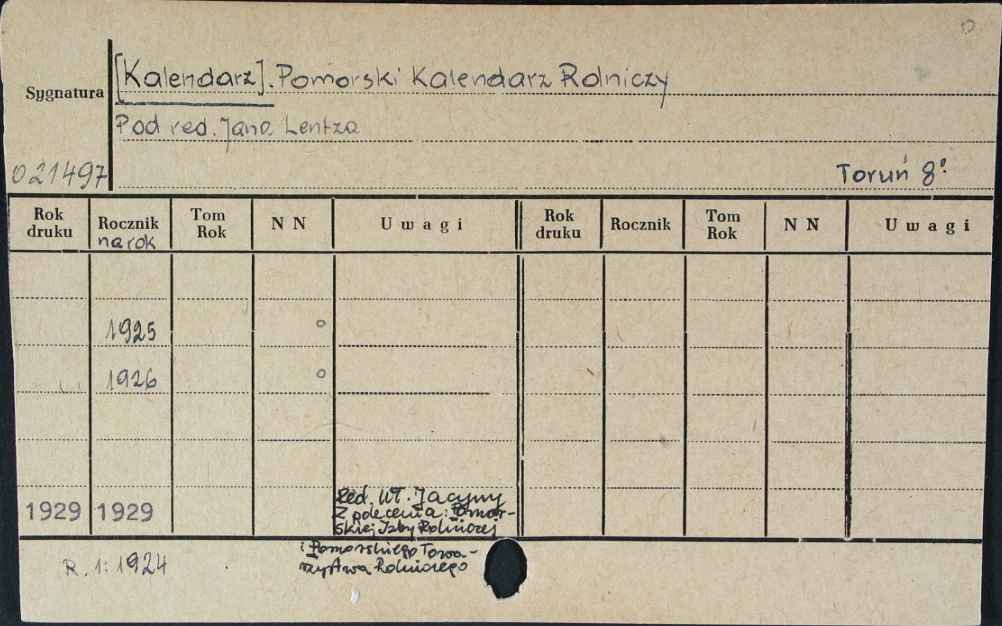 [Kalendarz]. Pomorski Kalendarz Rolniczy
Sygnatura
Pod red. Jana Lentza
021497
Toruń 8°.
Rok druku Rocznik na rok Tom Rok N N Uwagi Rok druku Rocznik Tom Rok N N Uwagi
1925 °
1926 °
1929 1929 Red. Wł. Jacyny
Z polecenia: Pomor-
skiej Izby Rolniczej
i Pomorskiego Towa-
rzystwa Rolniczego
R. 1: 1924